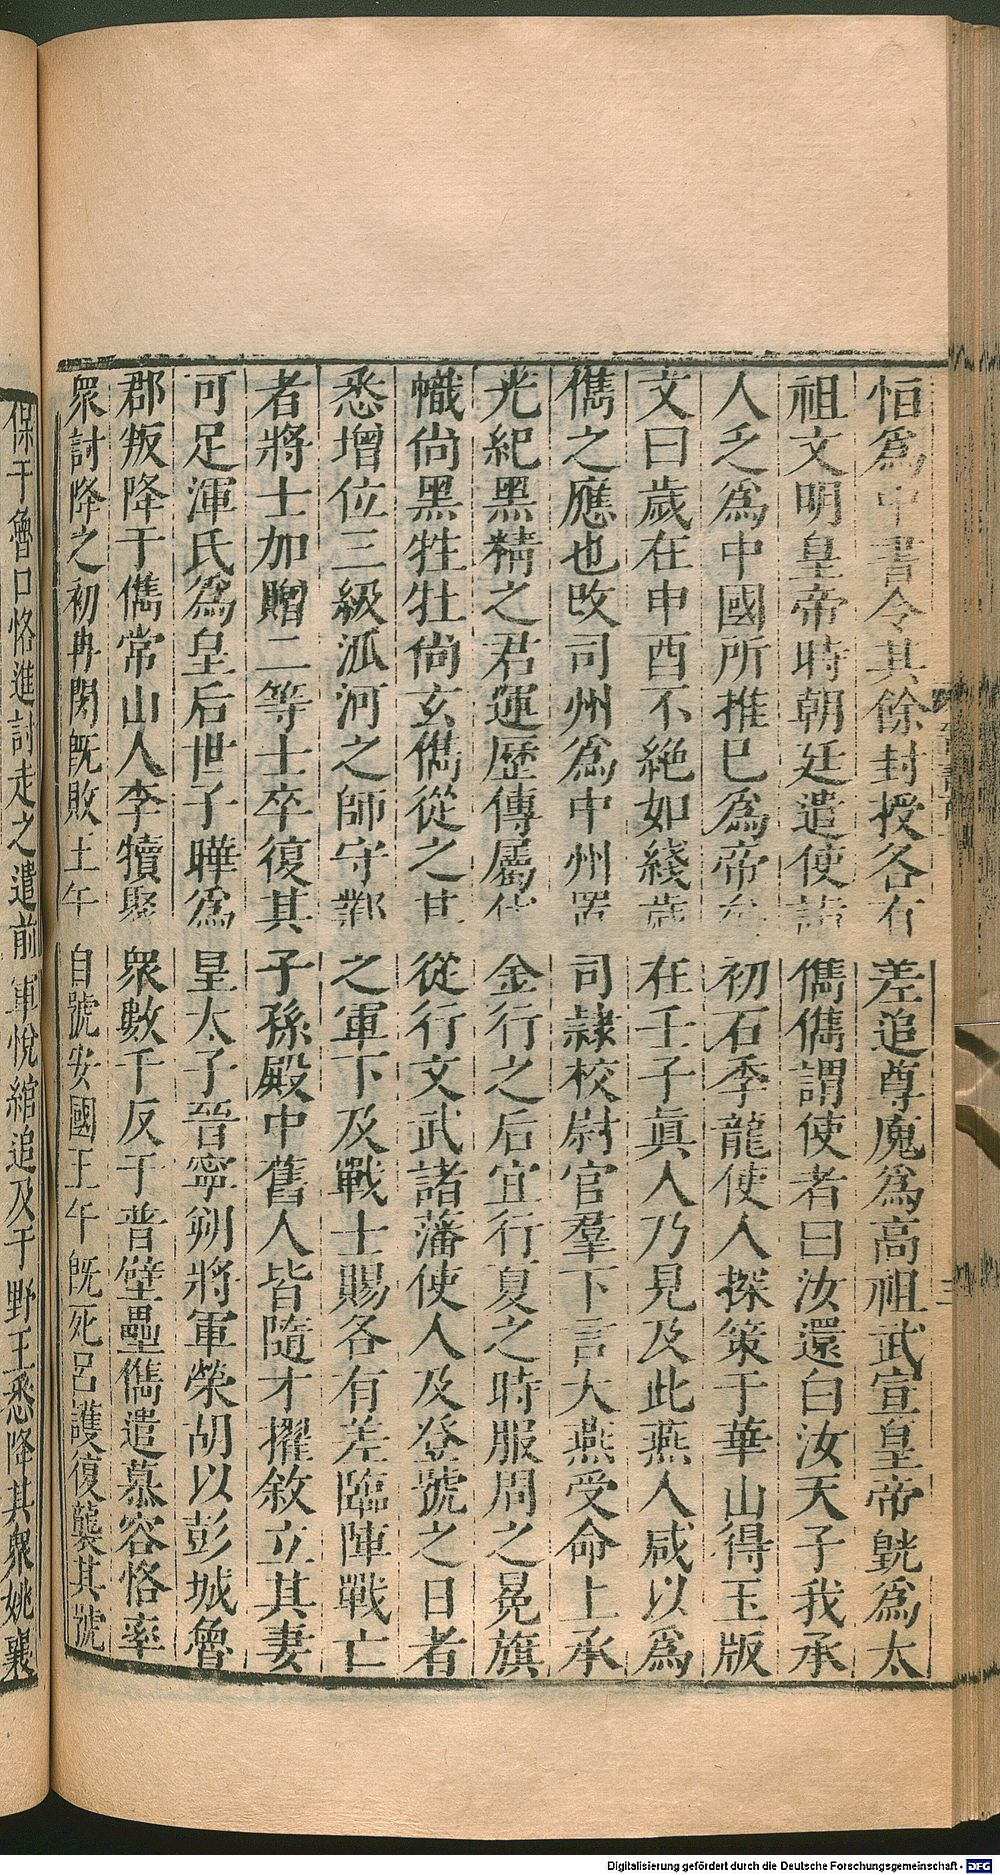 恒爲中書令其餘封授各有差追尊廆爲高祖武宣皇帝皝爲太
祖文明皇帝時朝廷遣使詣儁儁謂使者曰汝還白汝天子我承
人乏爲中國所推已爲帝矣初石季龍使人探策于華山得玉版
文曰歲在申酉不絶如綫歲在壬子眞人乃見及此燕人咸以爲
儁之應也改司州爲中州置司隷校尉官羣下言大燕受命上承
光紀黑精之君運歷傳屬代金行之后宜行夏之時服周之冕旗
幟尚黑牲牡尚玄儁從之其從行文武諸藩使人及登號之日者
悉增位三級泒河之師守鄴之軍下及戰士賜各有差臨陣戰亡
者將士加贈二等士卒復其子孫殿中舊人皆隨才擢敘立其妻
可足渾氏爲皇后世子曄爲皇太子晉寧朔將軍榮胡以彭城魯
郡叛降于儁常山人李犢聚衆數千反于普壁壘儁遣慕容恪率
衆討降之初冉閔旣敗王午自號安國王午旣死呂護復襲其號
保于魯口恪進討走之遣前軍悅綰追及于野王悉降其衆姚襄
Digitalisierung gefördert durch die Deutsche Forschungsgemeinschaft - DFG